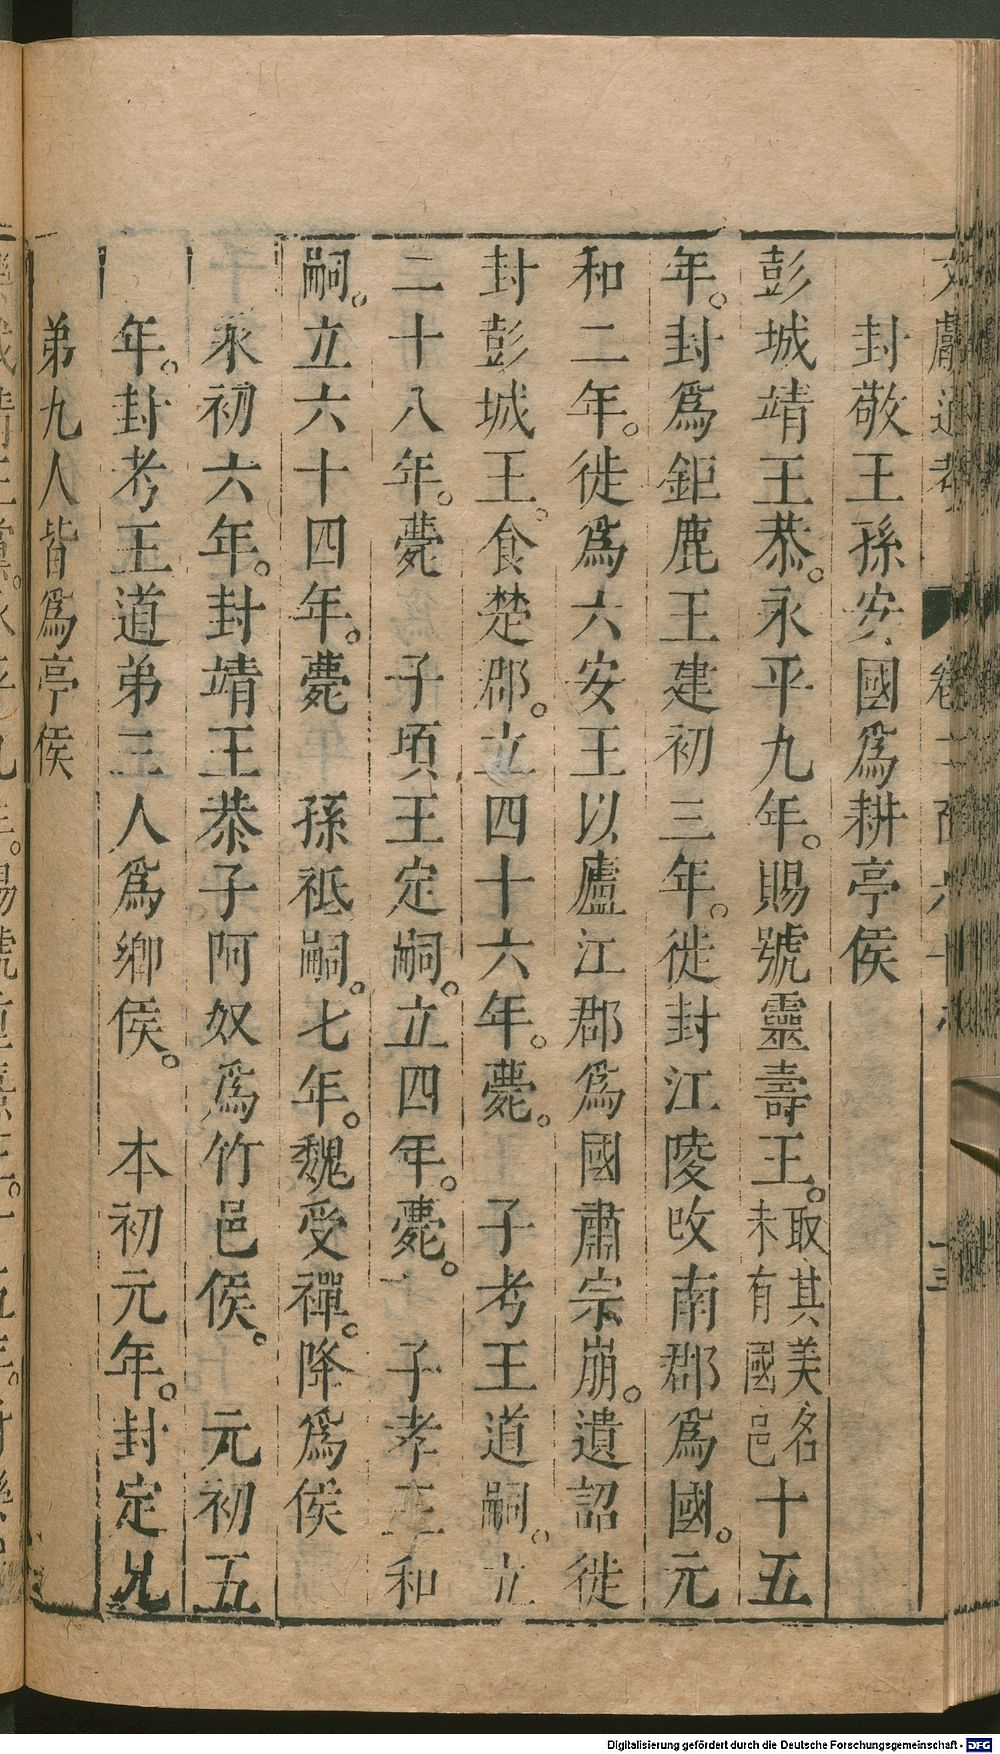 封敬王孫安國爲耕亭侯
彭城靖王恭。永平九年。賜號靈壽王。取其美名未有國邑十五
年。封爲鉅鹿王建初三年。徙封江陵改南郡爲國。元
和二年。徙爲六安王以廬江郡爲國肅宗崩。遺詔徙
封彭城王。食楚郡。立四十六年。薨。 子考王道嗣。立
二十八年。薨 子頃王定嗣。立四年。薨。 子孝王和
嗣。立六十四年。薨 孫祗嗣。七年。魏受禪。降爲侯
永初六年。封靖王恭子阿奴爲竹邑侯。 元初五
年。封考王道弟三人爲鄉侯。 本初元年。封定兄
弟九人皆爲亭侯
Digitalisierung gefördert durch die Deutsche Forschungsgemeinschaft - DFG